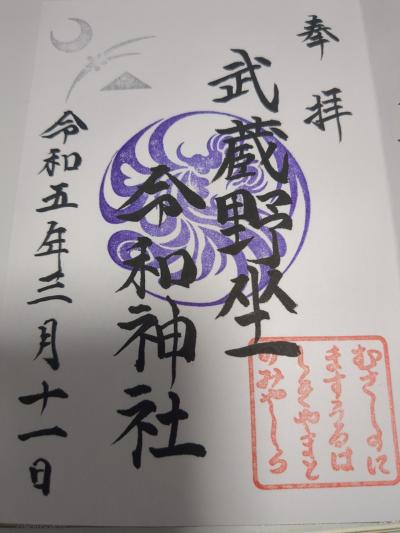 奉拝
武蔵野坐
令和神社
令和五年三月十一日
むさしのに
ますうるは
しきやまと
のみやしろ